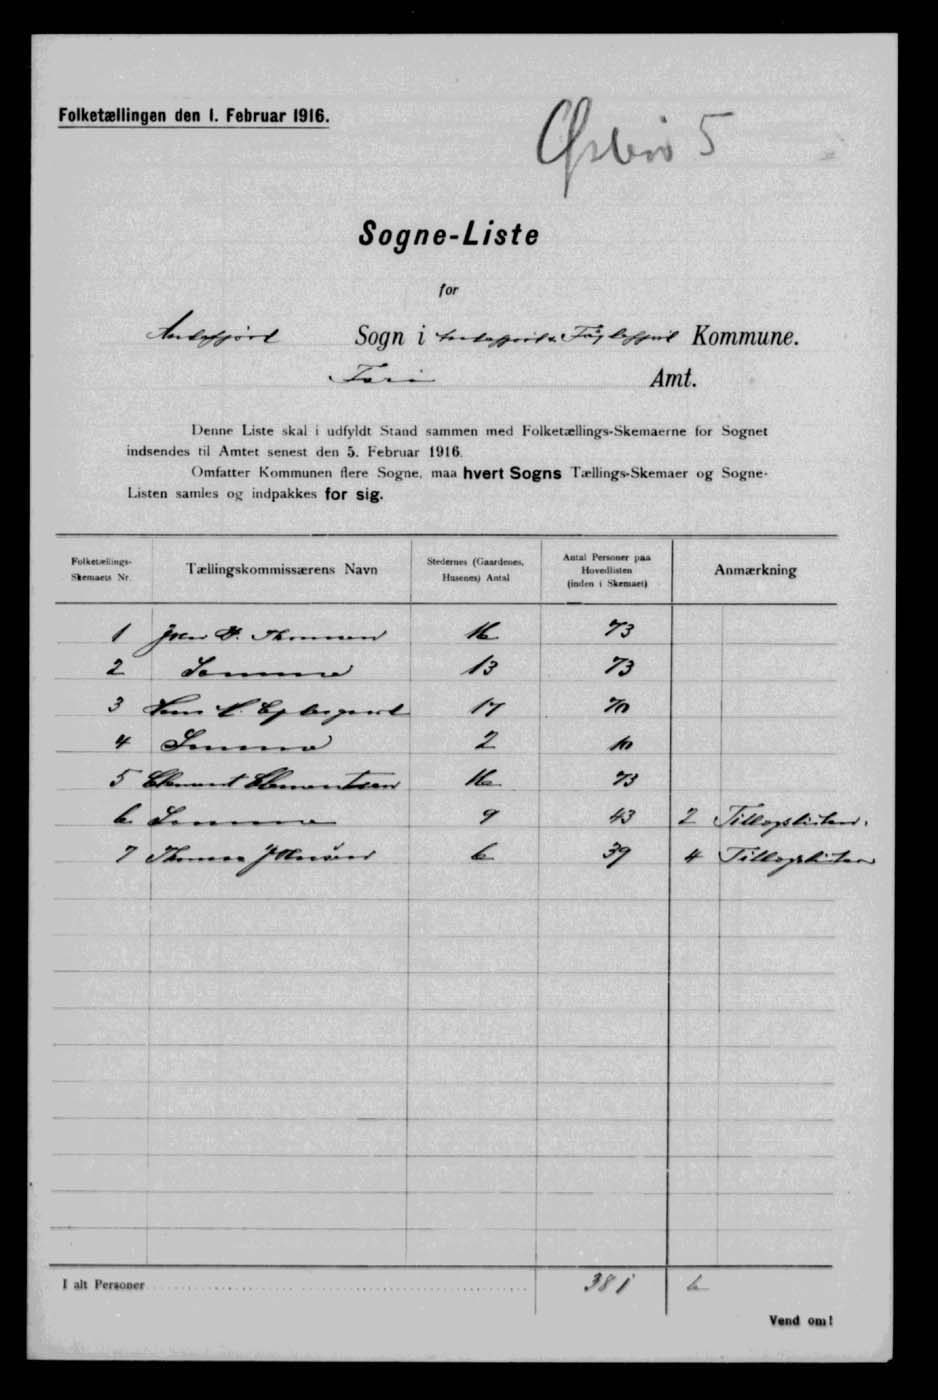 Folketællingen den 1. Februar 1916.
Østerø 5
Sogne-Liste
for
Andefjord Sogn i Andefjord & Fuglefjord Kommune.
Færø Amt.
Denne Liste skal i udfyldt Stand sammen med Folketællings-Skemaerne for Sognet
indsendes til Amtet senest den 5. Februar 1916.
Omfatter Kommunen flere Sogne, maa hvert Sogns Tællings-Skemaer og Sogne-
Listen samles og indpakkes for sig.
Folketællings-
Skemaets Nr.
Tællingskommissærens Navn
Stedernes (Gaardenes,
Husenes) Antal
Antal Personer paa
Hovedlisten
(inden i Skemaet)
Anmærkning
1 D. Thomsen 16 73
2 Samme 13 73
3 Hans 17 70
4 Samme 2 10
5 Clement Clementsen 16 73
6 Samme 9 43 2 Tillægslister.
7 Thomas 6 39 4 Tillægslister
I alt Personer 381 6
Vend om!